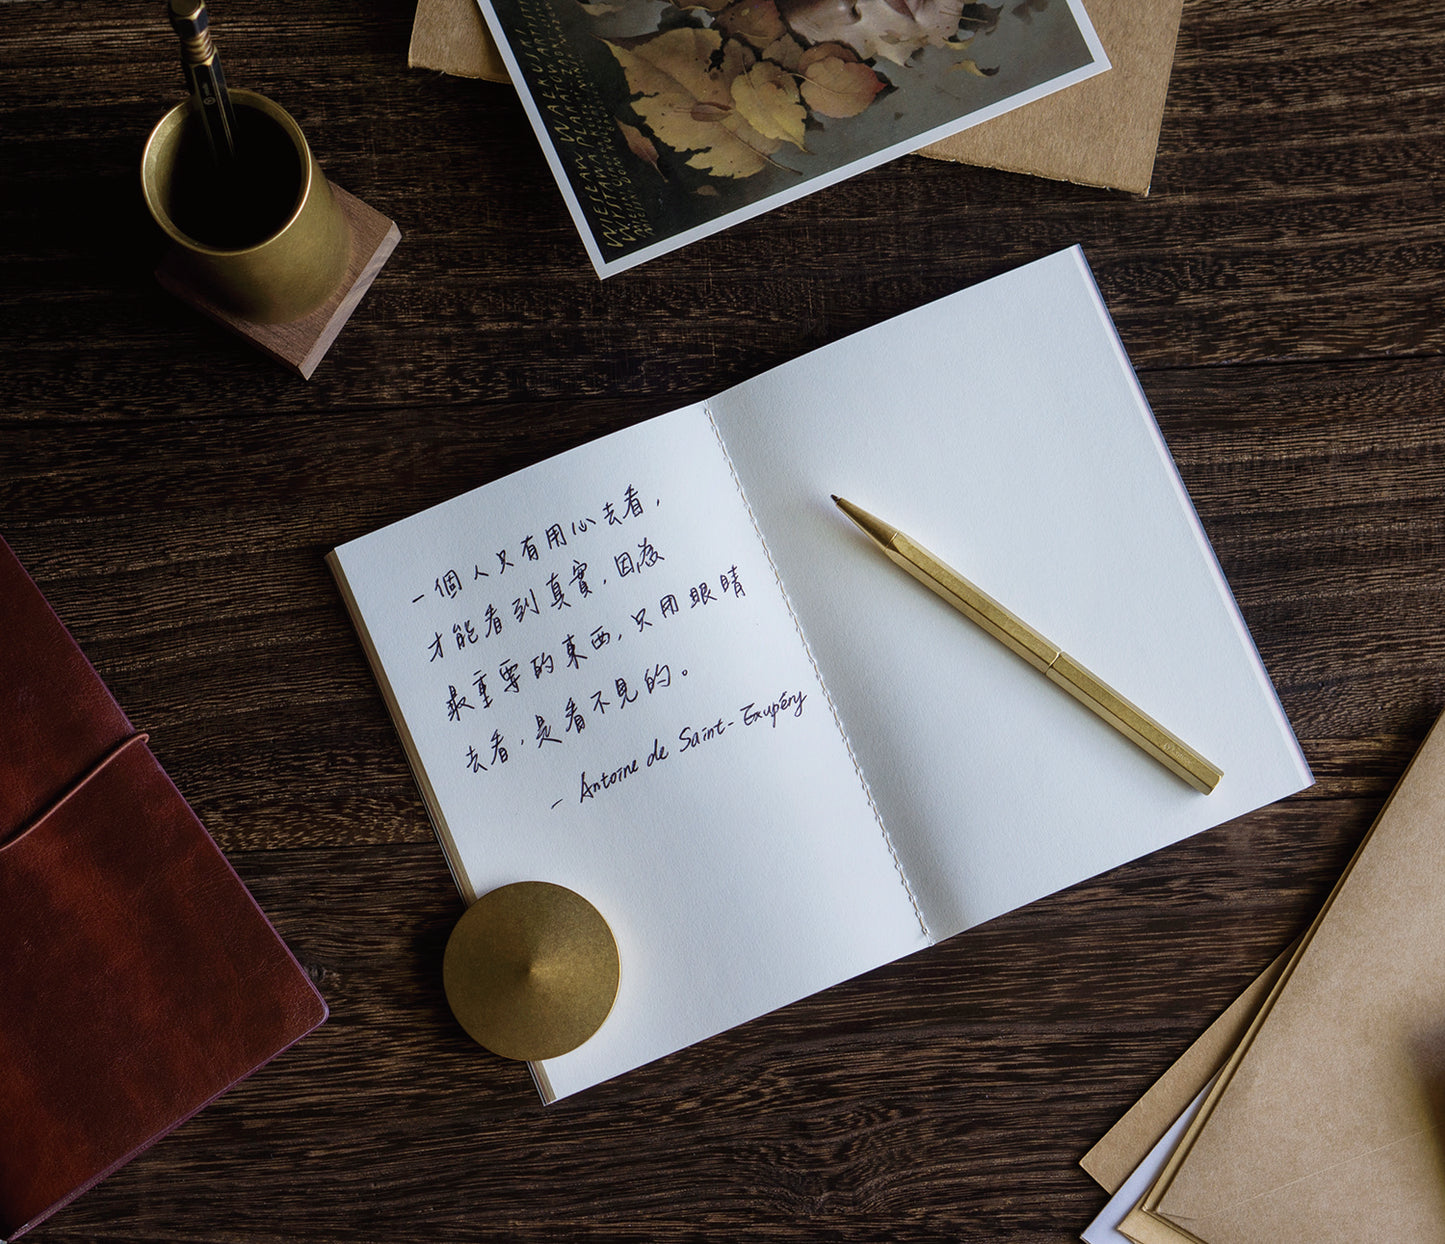 一個人只有用心去看，
才能看到真實，因為
最重要的東西，只用眼睛
去看，是看不見的。
- Antoine de Saint-Exupéry